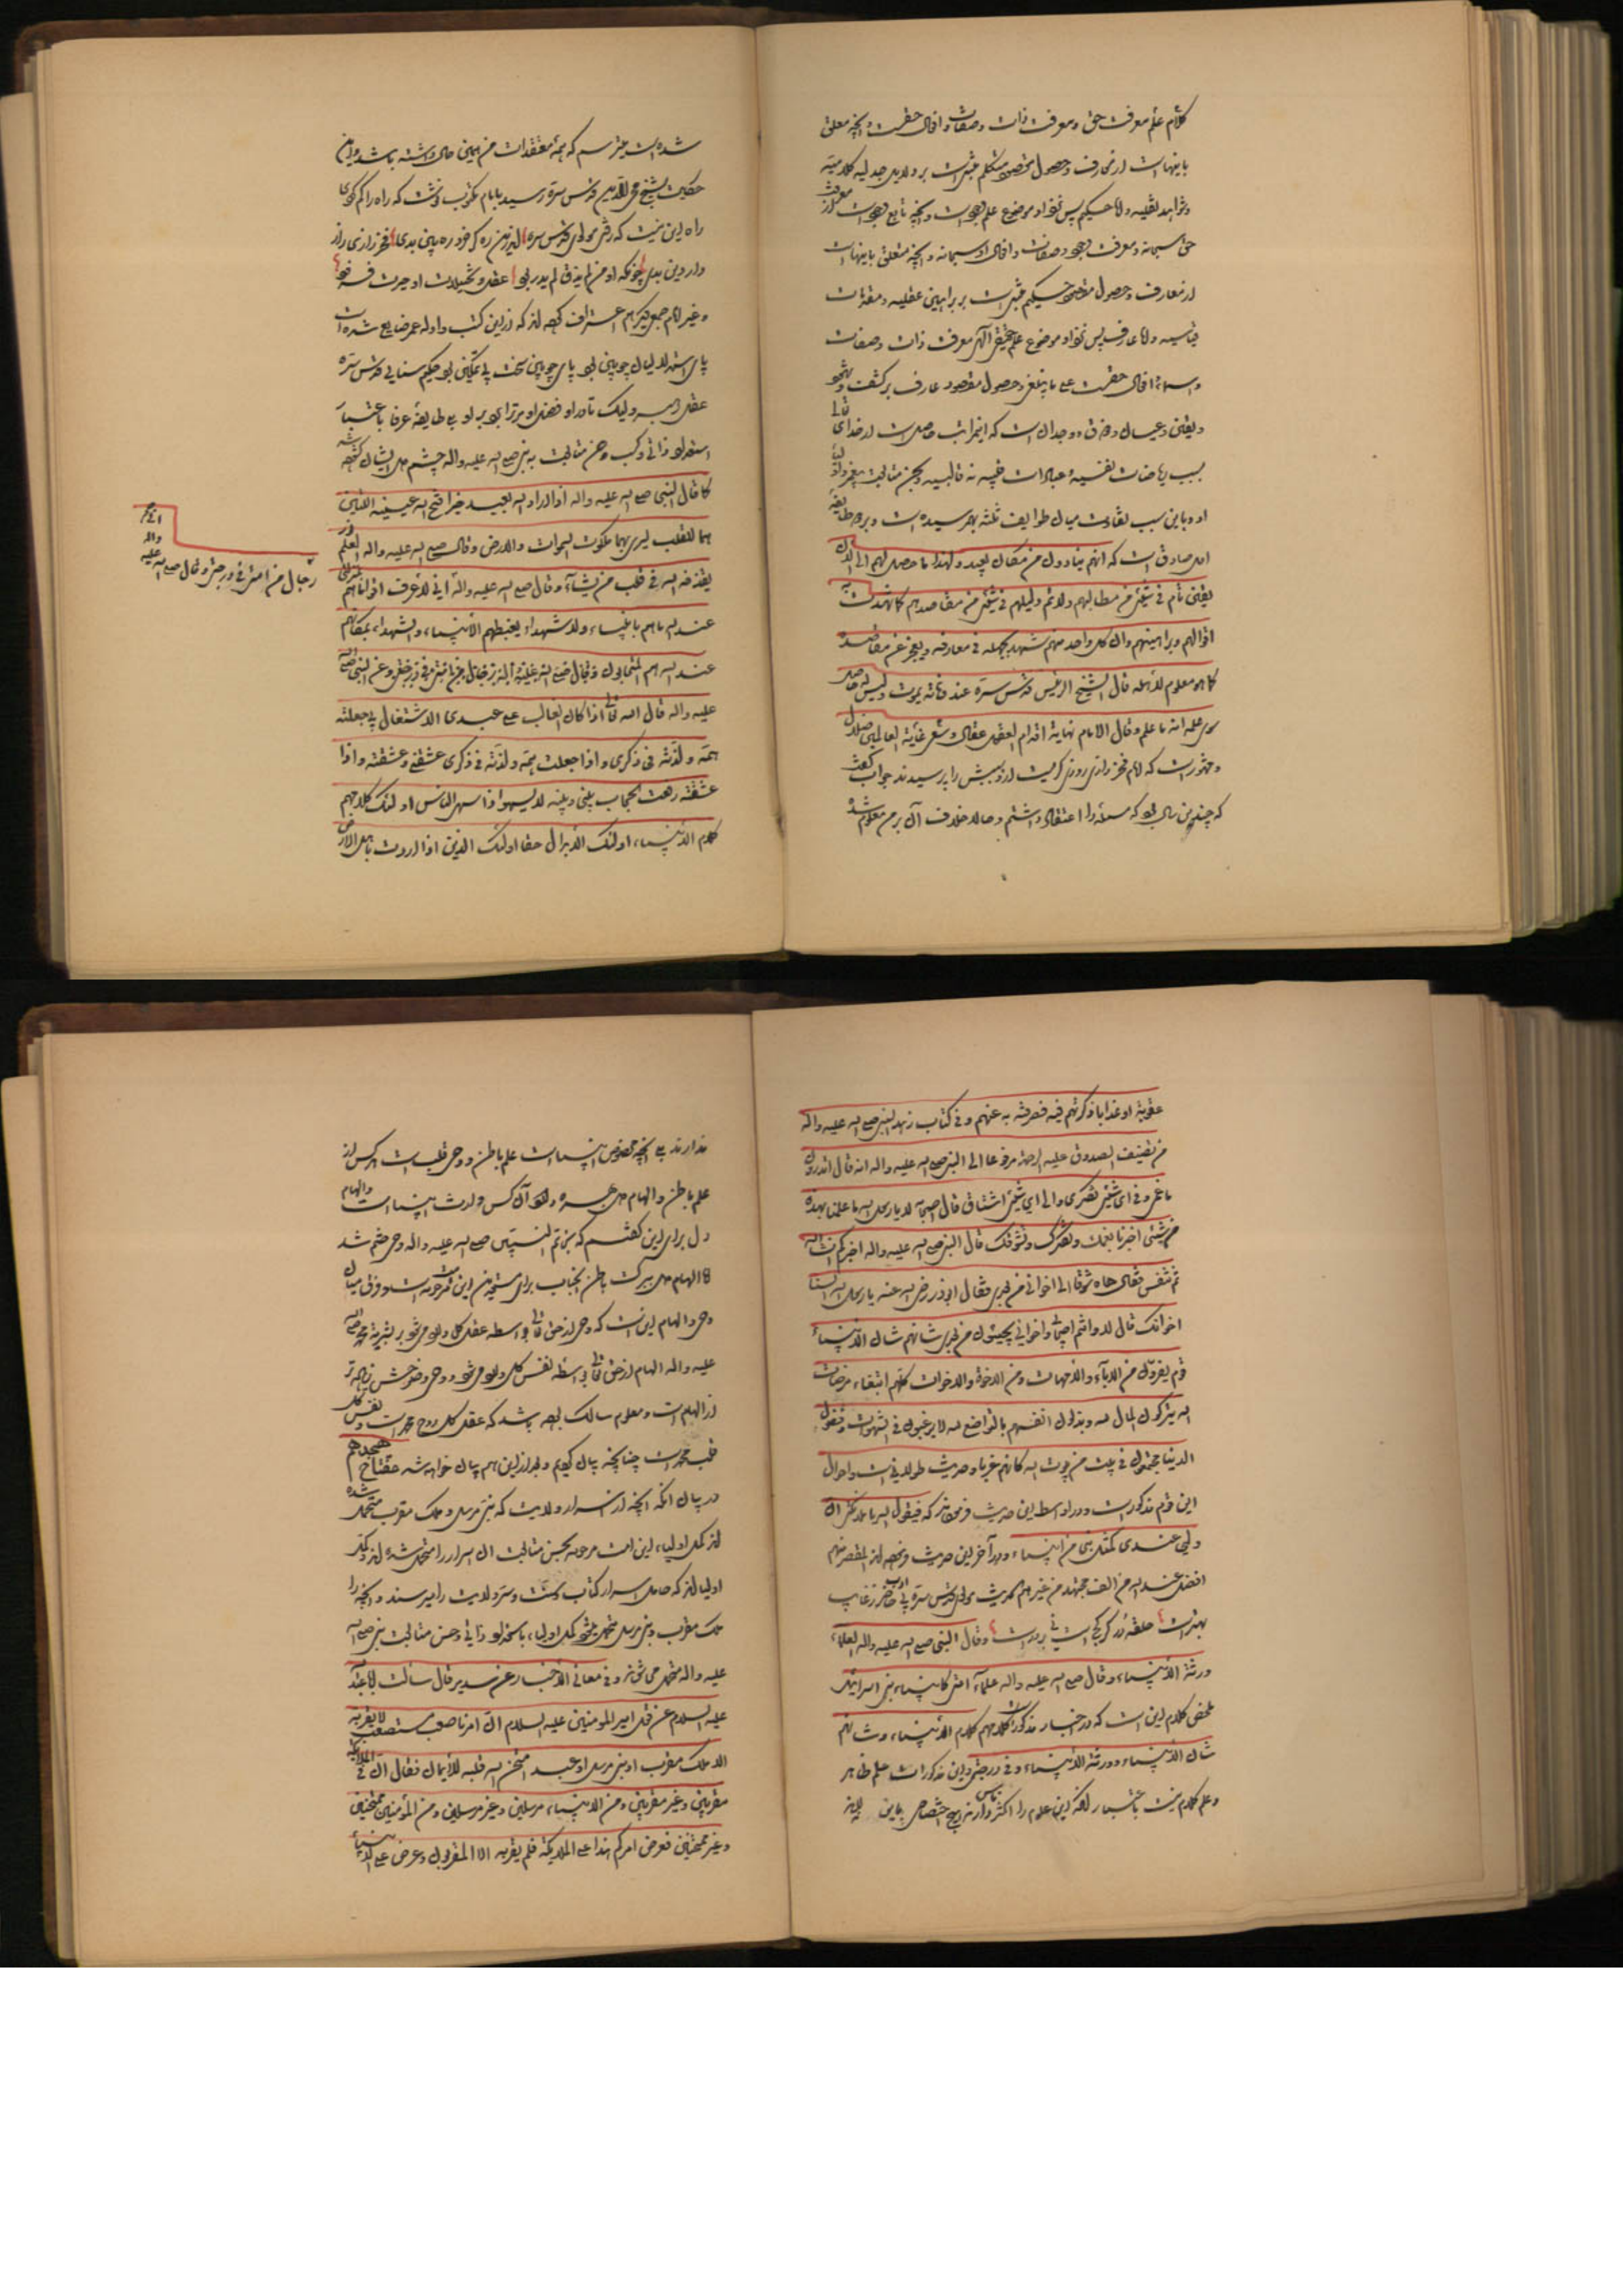 کلام علم معرفت حق و معرفت ذات و صفات و افعال حضرتست و آنچه متعلق
باینهاست از معارف و حصول مقصود متکلم مبتنی است بر دلایل جدلیه کلامیه
و شواهد نقلیه و اما حکیم پس نزد او موضوع علم وجود است و آنچه تابع وجود است از معرفت
حق سبحانه و معرفت وجود و صفات و افعال او سبحانه و آنچه متعلق باینهاست
از معارف و حصول مقصود حکیم مبتنی است بر براهین عقلیه و مقدمات
قیاسیه و اما عارف پس نزد او موضوع علم حقیقی الهی معرفت ذات و صفات
و اسماء و افعال حضرت علی ما ینبغی و حصول مقصود عارف بر کشف و شهود
و یقین و عیان و ذوق و وجدان است که این مراتب حاصل است از خدای تعالی
بسبب ریاضات نفسیه و عبادات قلبیه نه قالبیه و بحسن متابعت پیغمبر و اولیاء
او و باین سبب تفاوت میان طوایف ثلثه بهم رسیده است و بر دو طایفه
اول صادق است که انهم ینادون من مکان بعید و لهذا ما حصل لهم الی الان
یقین تام فی شیئ من مطالبهم و لا تم دلیلهم فی شیئ من مقاصدهم کما شهدت به
اقوالهم و براهینهم و ان کل واحد منهم شهد بجهله فی معارفه و بعجز عن مقاصده
کما هو معلوم لاهله قال الشیخ الرئیس قدس سره عند وفاته یموت و لیس له حاصل
سوی علمه انه ما علم و قال الامام نهایة اقدام العقول عقال و سعی غایة العالمین ضلال
و مشهور است که امام فخر رازی روزی گریست از سببش را پرسیدند جواب گفت
که چندین سال بود که مسئله را اعتقاد داشتم و حالا خلاف آن بر من معلوم شده
شده است میترسم که همه معتقدات من همین حال داشته باشد و این
حکایت بشیخ محیی الدین قدس سره رسید بامام مکتوب نوشت که راه راکم کردی
راه این نیست که رفتی مولوی قدس سره
دار دین بدی چونکه او من لم یذق لم یدر بود عقل و تخییلات او حیرت فزود
و غیر امام جمع دیگر هم اعتراف کرده اند که از این کتب و ادله عمر ضایع شده است
پای استدلالیان چوبین بود پای چوبین سخت بی تمکین بود حکیم سنایی قدس سره
عقل رهبر ولیک تا در او فضل او مر ترا برد بر او بلی طایفه عرفا باعتبار
استعداد ذاتی و کسب و حسن متابعت پیغمبر صلی الله علیه و اله چشم دل ایشان گشوده شد
کما قال النبی صلی الله علیه و اله اذا اراد الله بعبد خیرا فتح الله عینیه اللتین
هما للقلب لیری بهما ملکوت السموات و الارض و قال صلی الله علیه و اله العلم نور
یقذفه الله فی قلب من یشاء و قال صلی الله علیه و اله انی لاعرف اقواما هم بمنزلتی
عند الله ما هم بانبیاء و لا شهداء یغبطهم الانبیاء و الشهداء بمکانهم
عند الله هم المتحابون و قال صلی الله علیه و اله رجال من امتی فی درجتی و عن النبی صلی الله
علیه و اله قال الله تعالی اذا کان الغالب علی عبدی الاشتغال بی جعلت
همه و لذته فی ذکری و اذا جعلت همه و لذته فی ذکری عشقنی و عشقته و اذا
عشقته رفعت الحجاب بینی و بینه لا یسهو اذا سهی الناس اولئک کلامهم
کلام الانبیاء اولئک الابدال حقا اولئک الذین اذا اردت باهل الارض
رجال من امتی فی درجتی و قال صلی الله علیه
و اله
عقوبة او عذابا ذکرتهم فیه فصرفته به عنهم و فی کتاب زهد النبی صلی الله علیه و اله
من تصنیف الصدوق علیه الرحمة مرفوعا الی النبی صلی الله علیه و اله انه قال اتدرون
ما غمی و فی ای شیئ تفکری و الی ای شیئ اشتاق قال اصحابه لا یا رسول الله ما علمنا بهذه
من شیئ اخبرنا بغمک و تفکرک و تشوقک قال النبی صلی الله علیه و اله اخبرکم انشاء الله
ثم تنفس فقال هاه شوقا الی اخوانی من بعدی فقال ابوذر رضی الله عنه یا رسول الله السنا
اخوانک قال لا و انتم اصحابی و اخوانی یجیئون من بعدی شانهم شان الانبیاء
قوم یفرون من الاباء و الامهات و من الاخوة و الاخوات کلهم ابتغاء مرضات
الله یترکون المال لله و یذلون انفسهم بالتواضع لله لا یرغبون فی الشهوات و فضول
الدنیا مجتمعون فی بیت من بیوت الله کانهم غرباء و حدیث طولانی است و احوال
این قوم مذکور است و در اواسط این حدیث فرموده که فیقول الله یا ملائکتی ان
ولیی عندی کمثل نبی من انبیاء و در آخر این حدیث فرموده اند المقصر منهم
افضل عند الله من الف مجتهد من غیرهم مولوی قدس سره بی ادب حاضر ز غایب
بهتر است حلقه در گر کج است نی بر در است و قال النبی صلی الله علیه و اله العلماء
ورثة الانبیاء و قال صلی الله علیه و اله علماء امتی کانبیاء بنی اسرائیل
ملخص کلام این است که در اخبار مذکور است کلامهم کلام الانبیاء و شانهم
شان الانبیاء و ورثة الانبیاء و فی درجتی و این مذکورات علم ظاهر
و علم کلام نیست باعتبار آنکه این علوم را اکثر ناس دارند هیچ اختصاص باین
ندارند بلی آنچه مخصوص انبیاست علم باطن و وحی قلب است هر کس از
علم باطن و الهام دل بهره دارد آن کس وارث انبیاست و الهام
دل برای این گفتم که بخاتم النبیین صلی الله علیه و اله وحی ختم شد
اما الهام دل ببرکت باطن آنجناب برای مستعدین این امت مرحومه هست و فرق میان
وحی و الهام این است که وحی از حق تعالی بواسطه عقل کل وارد میشود بر بشریة محمد صلی الله
علیه و اله الهام از حق تعالی بواسطه نفس کل وارد میشود و وحی و ضوحش زیاده تر
از الهام است و معلوم سالک بوده باشد که عقل کل روح محمد است و نفس کل
قلب محمد است چنانچه بیان کردیم و بعد از این هم بیان خواهد شد مفتاح هجدهم
در بیان آنکه آنچه از اسرار ولایت که نبی مرسل و ملک مقرب متحمل شده
اند کمل اولیاء این امت مرحومه بحسن متابعت آن اسرار را متحمل شده اند و کمل
اولیا اند که حامل اسرار کتاب و سنت و سر ولایت را میرسند و آنچه را
ملک مقرب و نبی مرسل متحمل میشود کمل اولیاء باستعداد ذاتی و حسن متابعت نبی صلی الله
علیه و اله متحمل می شوند و فی معانی الاخبار عن سدیر قال سالت ابا عبدالله
علیه السلام عن قول امیر المؤمنین علیه السلام ان امرنا صعب مستصعب لا یقر به
الا ملک مقرب او نبی مرسل او عبد امتحن الله قلبه للایمان فقال ان فی الملائکة
مقربین و غیر مقربین و من الانبیاء مرسلین و غیر مرسلین و من المؤمنین ممتحنین
و غیر ممتحنین فعرض امرکم هذا علی الملائکة فلم یقر به الا المقربون و عرض علی الانبیاء